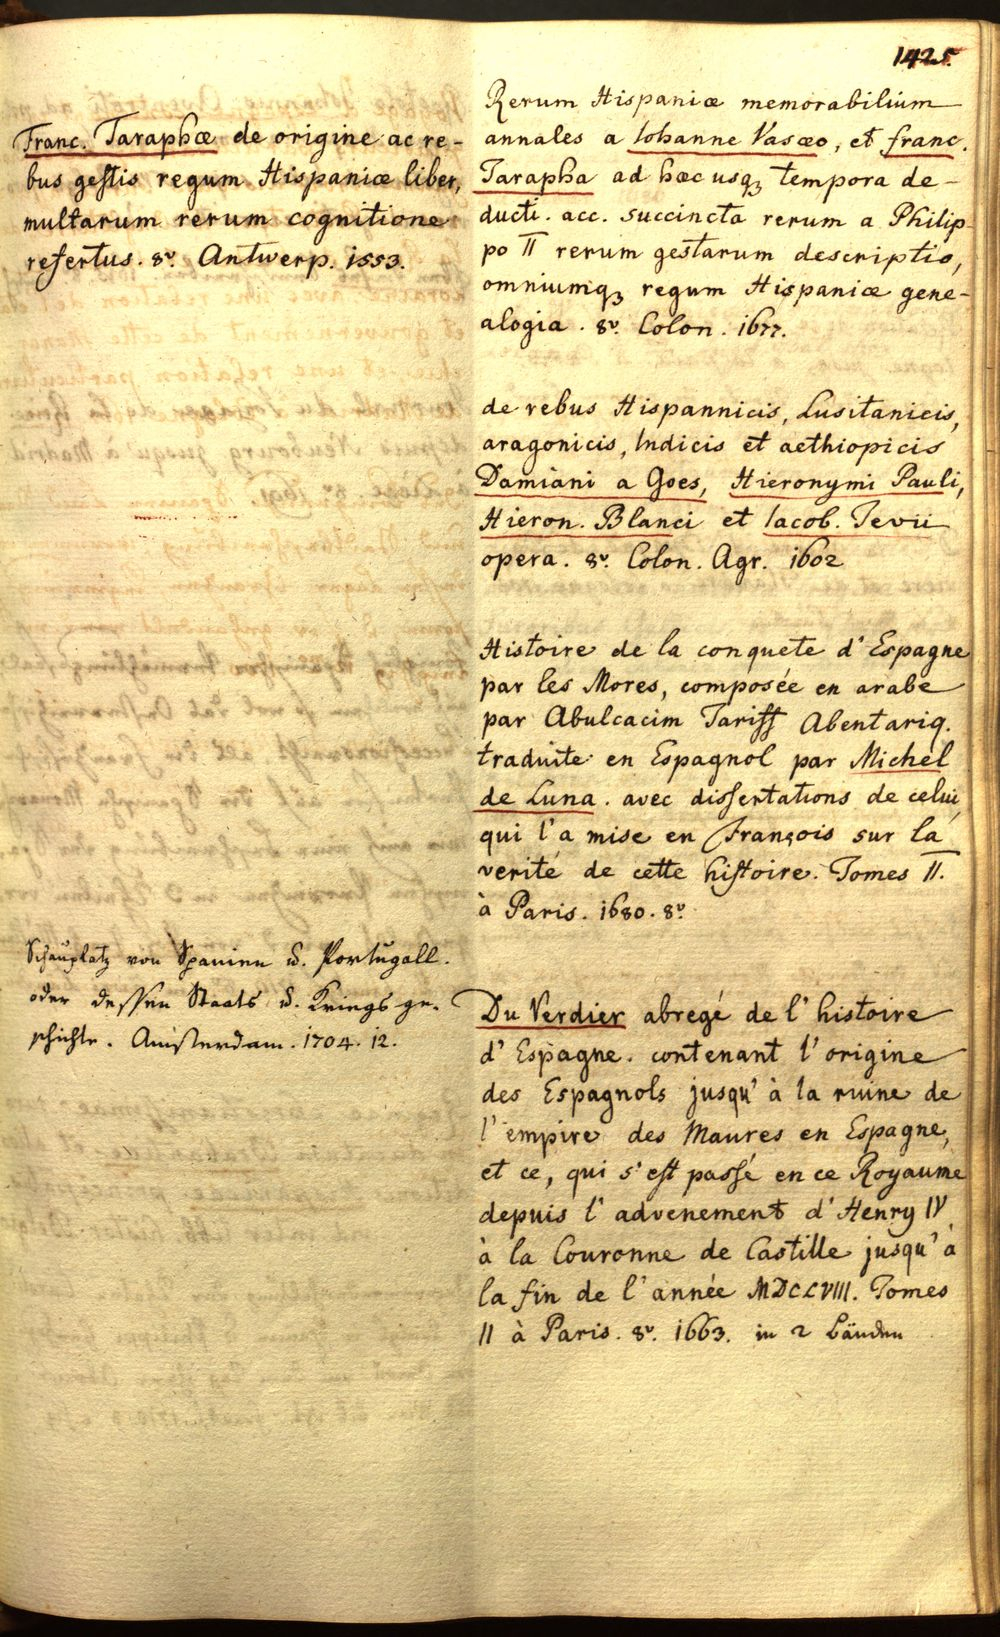 1425.
Franc. Taraphæ de origine ac re-
bus gestis regum Hispaniæ liber,
multarum rerum cognitione
refertus. 8v. Antwerp. 1553.
Schauplatz von Spanien u. Portugall.
oder dessen Staats u. Kriegs ge-
schichte. Amsterdam. 1704. 12.
Rerum Hispaniæ memorabilium
annales a Iohanne Vasæo, et franc.
Tarapha ad hæc usq; tempora de-
ducti. acc. succincta rerum a Philip-
po II rerum gestarum descriptio,
omniumq; regum Hispaniæ gene-
alogia. 8v. Colon. 1677.
de rebus Hispannicis, Lusitanicis,
aragonicis, Indicis et aethiopicis
Damiani a Goes, Hieronymi Pauli,
Hieron. Blanci et Iacob. Tevii
opera. 8v. Colon. Agr. 1602
Histoire de la conquete d'Espagne
par les Mores, composée en arabe
par Abulcacim Tariff Abentariq.
traduite en Espagnol par Michel
de Luna. avec dissertations de celui,
qui l'a mise en François sur la
verité de cette histoire. Tomes II.
à Paris. 1680. 8v.
Du Verdier abregé de l'histoire
d'Espagne. contenant l'origine
des Espagnols jusqu'à la ruine de
l'empire des Maures en Espagne,
et ce, qui s'est passé en ce Royaume
depuis l'advenement d'Henry IV
à la Couronne de Castille jusqu'à
la fin de l'année MDCLVIII. Tomes
II à Paris. 8v. 1663. in 2 Bänden